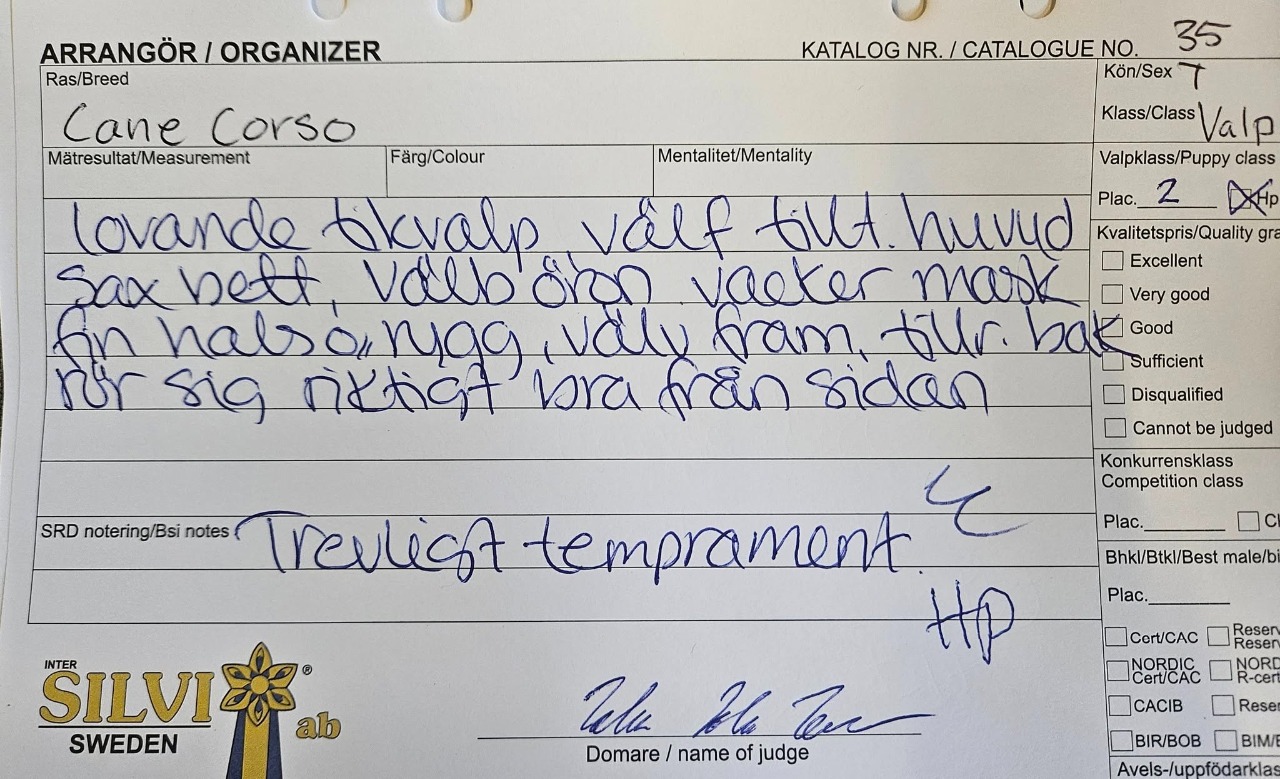 ARRANGÖR / ORGANIZER
KATALOG NR. / CATALOGUE NO. 35
Ras/Breed
Cane Corso
Kön/Sex T
Klass/Class Valp
Mätresultat/Measurement
Färg/Colour
Mentalitet/Mentality
Valpklass/Puppy class
Plac. 2 Hp
lovande tikvalp, välf tillt. huvud
sax bett, välb öron vacker mask
fin hals o rygg, välv fram, tillr. bak
rör sig riktigt bra från sidan
SRD notering/Bsi notes
Trevligt temprament
HP
Kvalitetspris/Quality gra
Excellent
Very good
Good
Sufficient
Disqualified
Cannot be judged
Konkurrensklass
Competition class
Plac.
Bhkl/Btkl/Best male/bi
Plac.
Cert/CAC
Reserv
Reserv
NORDIC
Cert/CAC
NORD
R-cert
CACIB
Reser
BIR/BOB
BIM/B
Avels-/uppfödarklas
INTER
SILVI ® ab
SWEDEN
Domare / name of judge